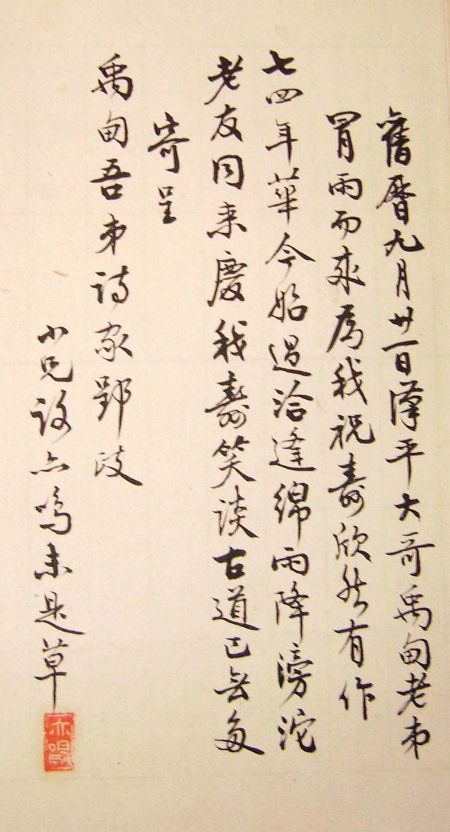 舊曆九月廿一日漢平大哥禹甸老弟
冒雨而來為我祝壽欣然有作
七四年華今始過洽逢綿雨降滂沱
老友同來慶我壽笑談古道已無多
寄呈
禹甸吾弟詩家郢政
小兄亦鳴未是草
亦鳴